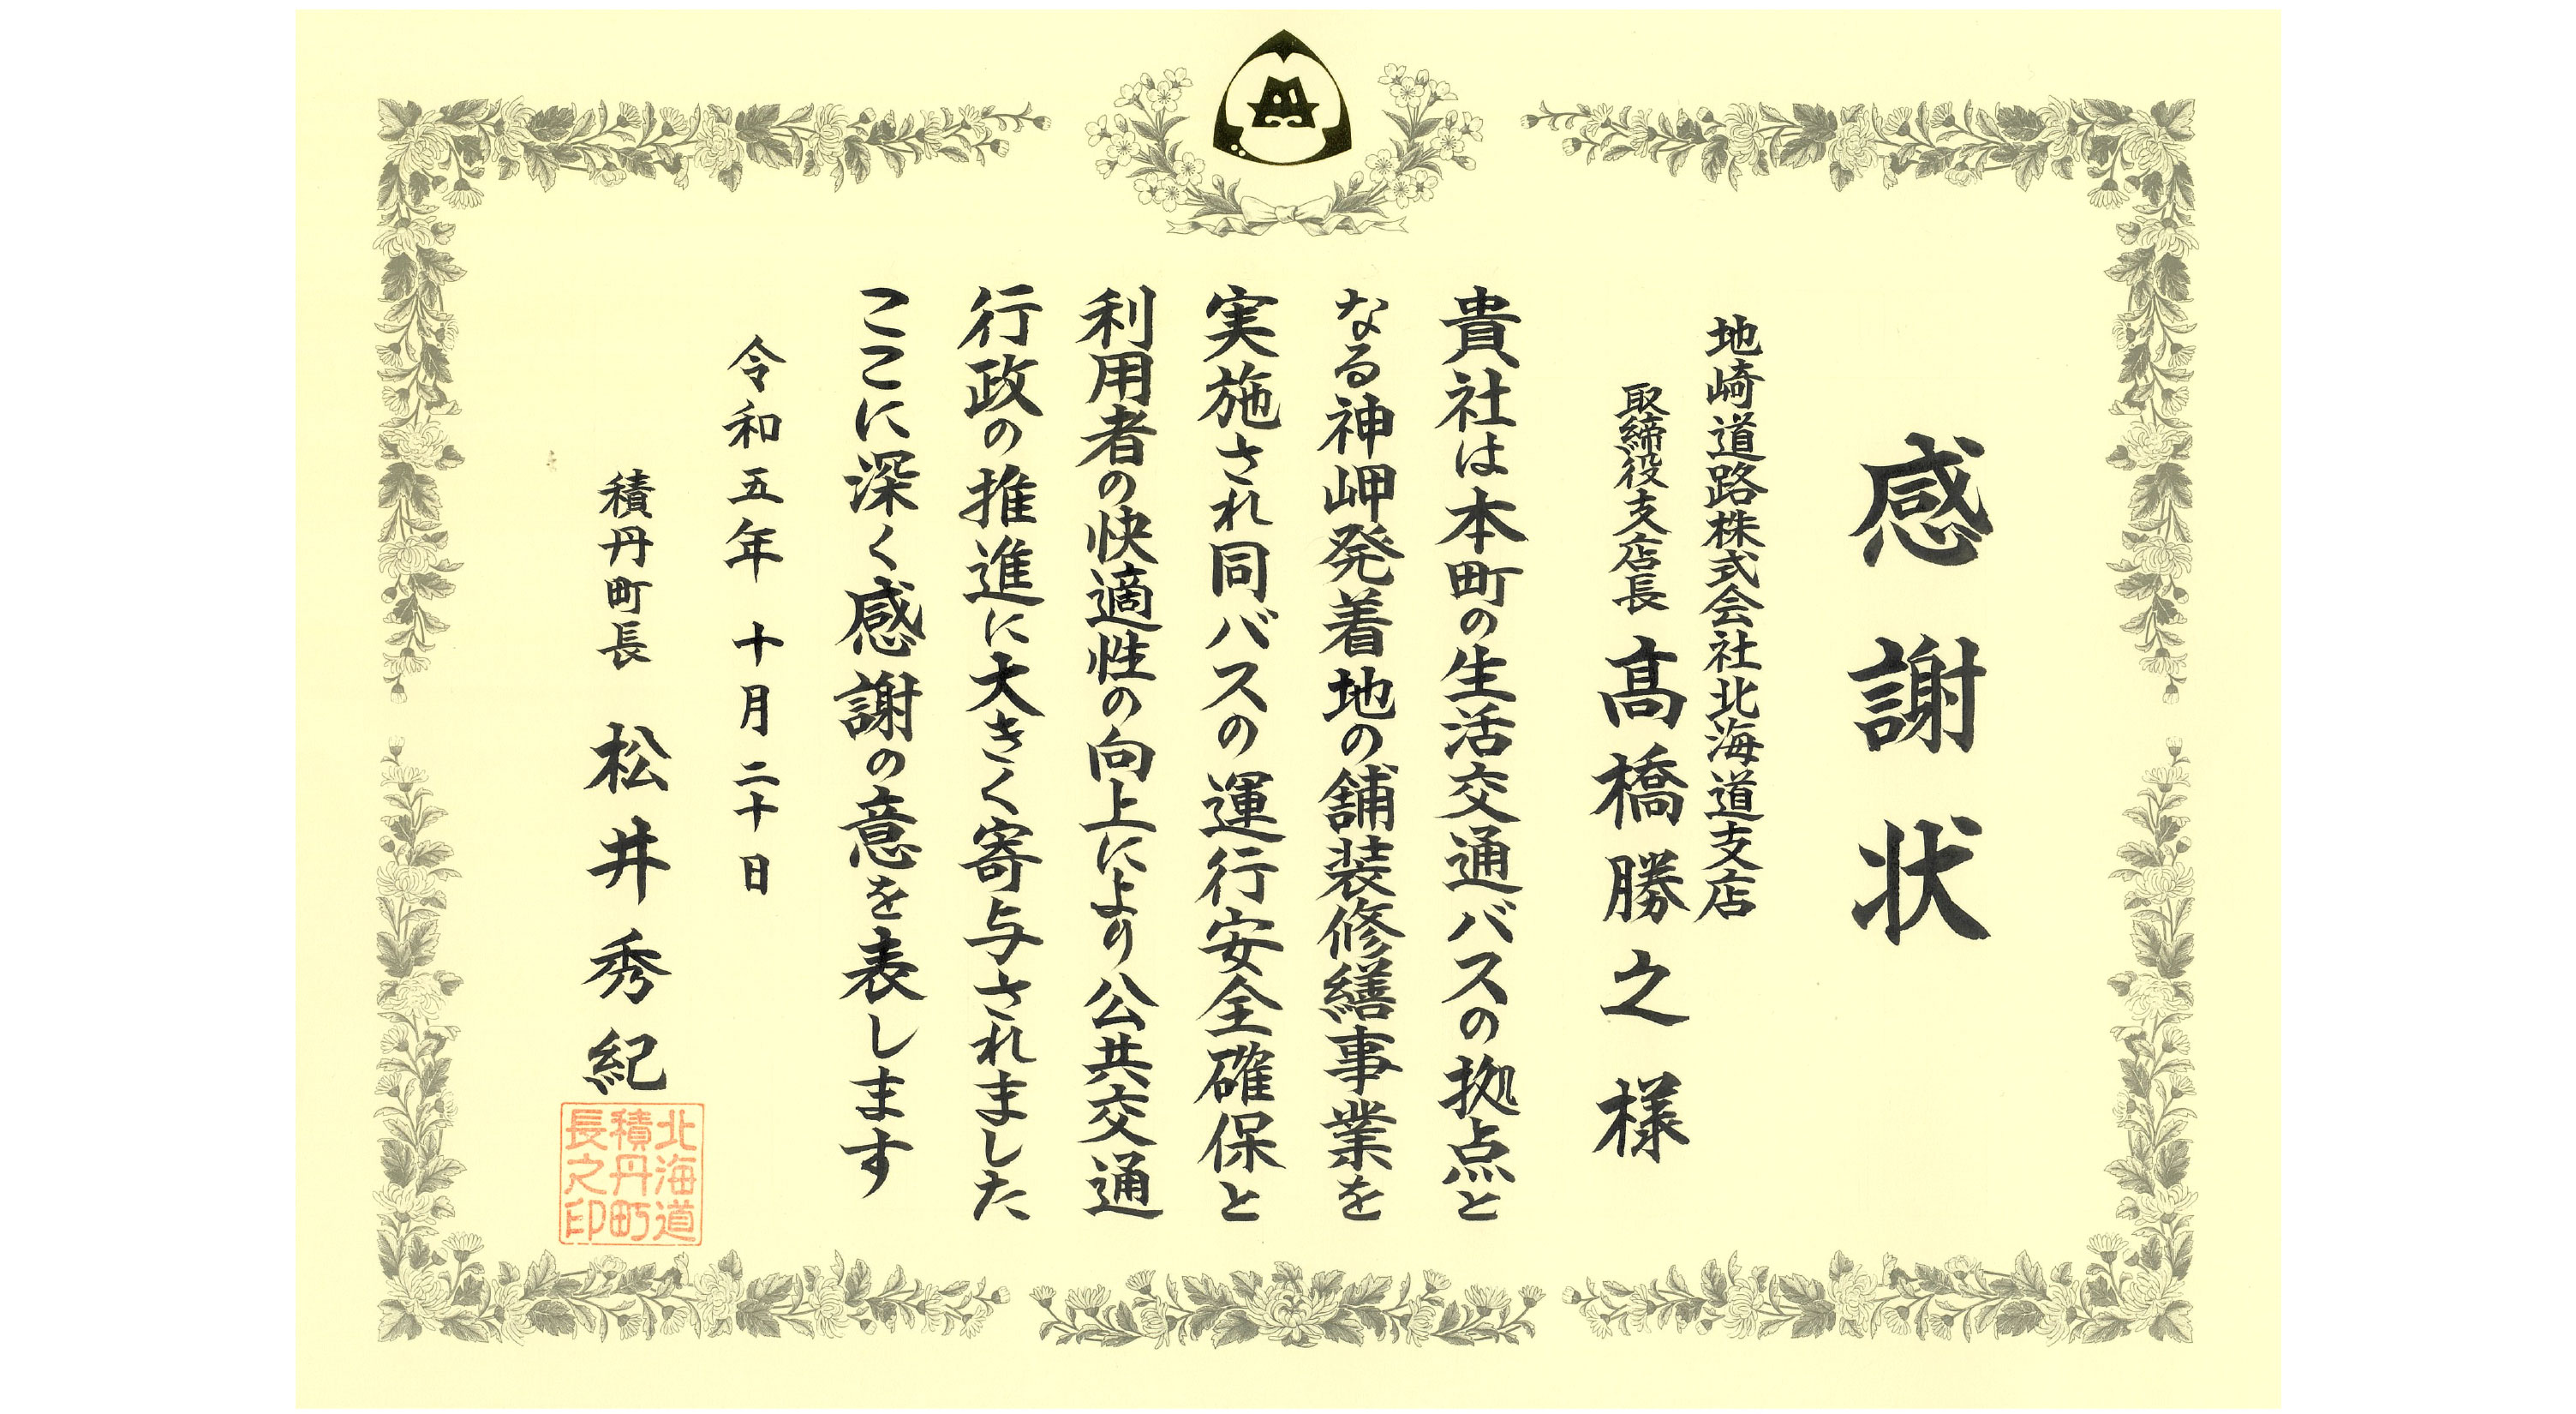 感謝状
地崎道路株式会社北海道支店
取締役支店長 髙橋勝之様
貴社は本町の生活交通バスの拠点と
なる神岬発着地の舗装修繕事業を
実施され同バスの運行安全確保と
利用者の快適性の向上により公共交通
行政の推進に大きく寄与されました
ここに深く感謝の意を表します
令和五年十月二十日
積丹町長 松井秀紀
北海道
積丹町
長之印